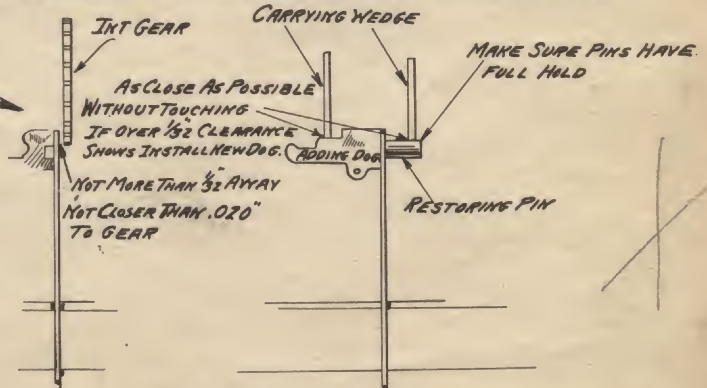 INT GEAR
CARRYING WEDGE
MAKE SURE PINS HAVE
FULL HOLD
AS CLOSE AS POSSIBLE
WITHOUT TOUCHING
IF OVER 1/32" CLEARANCE
SHOWS INSTALL NEW DOG.
ADDING DOG
NOT MORE THAN 1/32" AWAY
NOT CLOSER THAN .020"
TO GEAR
RESTORING PIN